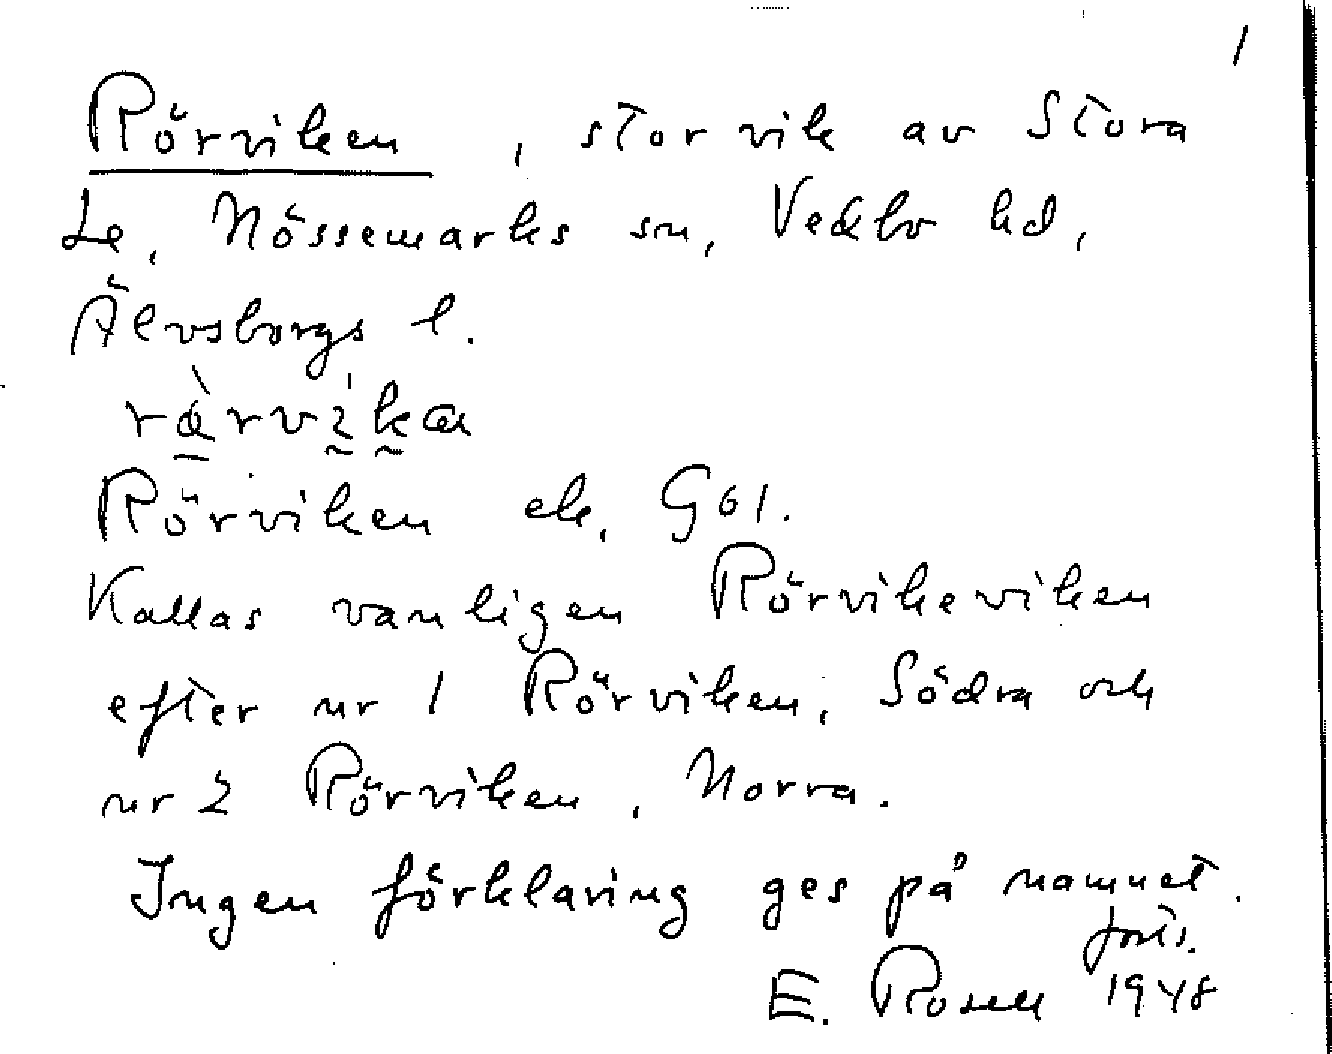 1
Rörviken, stor vik av Stora
Le, Nössemarks sn, Vedbo hd,
Älvsborgs l.
Rörviken ek. G61.
Kallas vanligen Rörvikeviken
efter nr 1 Rörviken, Södra och
nr 2 Rörviken, Norra.
Ingen förklaring ges på namnet.
forts.
E. Rosell 1948